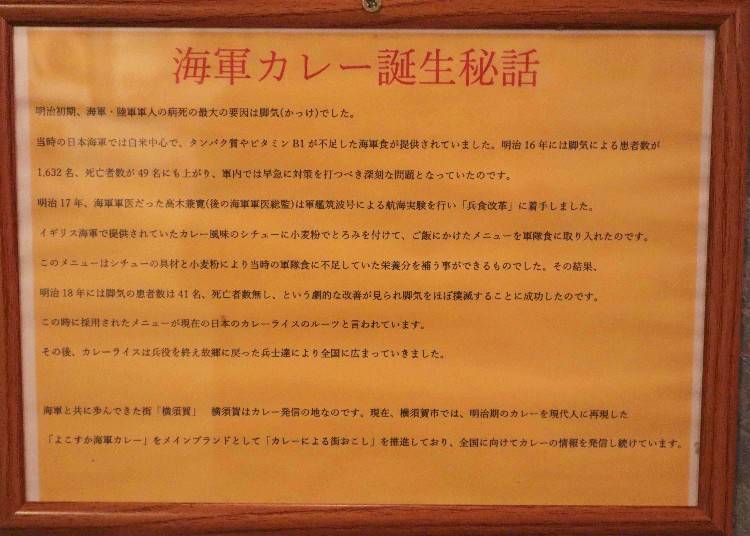 海軍カレー誕生秘話
明治初期、海軍・陸軍軍人の病死の最大の要因は脚気(かっけ)でした。
当時の日本海軍では白米中心で、タンパク質やビタミンB1が不足した海軍食が提供されていました。明治16年には脚気による患者数が
1,632名、死亡者数が49名にも上がり、軍内では早急に対策を打つべき深刻な問題となっていたのです。
明治17年、海軍軍医だった高木兼寛(後の海軍軍医総監)は軍艦筑波号による航海実験を行い「兵食改革」に着手しました。
イギリス海軍で提供されていたカレー風味のシチューに小麦粉でとろみを付けて、ご飯にかけたメニューを軍隊食に取り入れたのです。
このメニューはシチューの具材と小麦粉により当時の軍隊食に不足していた栄養分を補う事ができるものでした。その結果、
明治18年には脚気の患者数は41名、死亡者数無し、という劇的な改善が見られ脚気をほぼ撲滅することに成功したのです。
この時に採用されたメニューが現在の日本のカレーライスのルーツと言われています。
その後、カレーライスは兵役を終え故郷に戻った兵士達により全国に広まっていきました。
海軍と共に歩んできた街「横須賀」 横須賀はカレー発信の地なのです。現在、横須賀市では、明治期のカレーを現代人に再現した
「よこすか海軍カレー」をメインブランドとして「カレーによる街おこし」を推進しており、全国に向けてカレーの情報を発信し続けています。